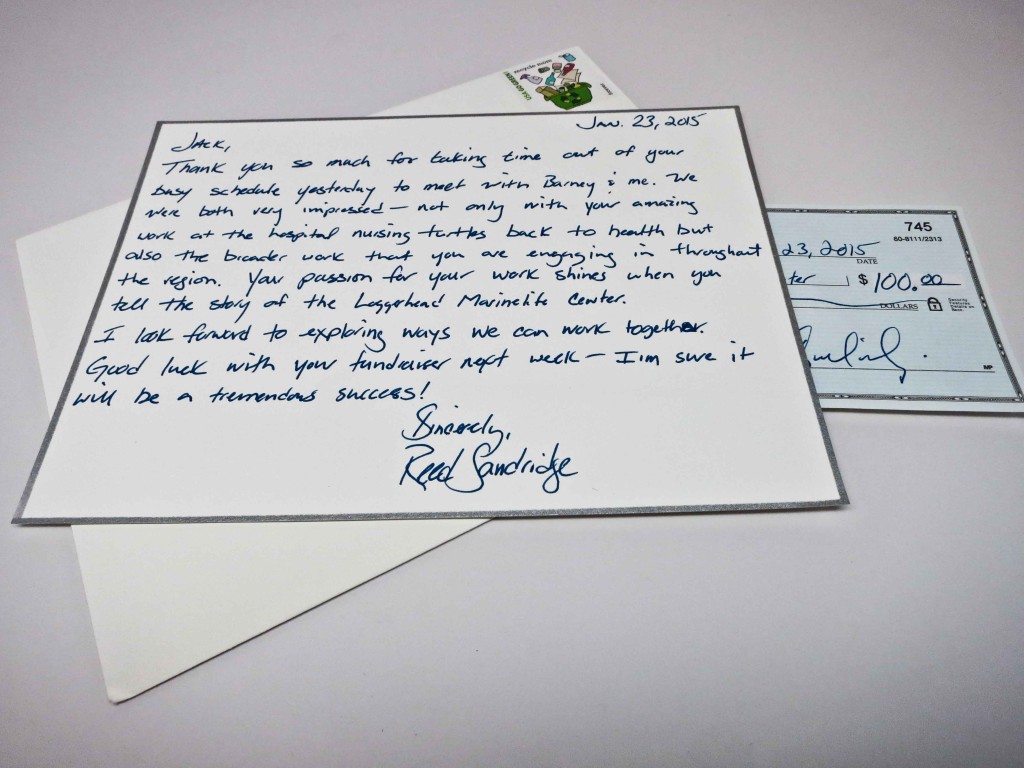 recycle more
USA GO GREEN
Jan. 23, 2015
Jack,
Thank you so much for taking time out of your
busy schedule yesterday to meet with Barney & me. We
were both very impressed — not only with your amazing
work at the hospital nursing turtles back to health but
also the broader work that you are engaging in throughout
the region. Your passion for your work shines when you
tell the story of the Loggerhead Marinelife Center.
I look forward to exploring ways we can work together.
Good luck with your fundraiser next week — I'm sure it
will be a tremendous success!
Sincerely,
Reed Sandridge
745
60-8111/2313
23, 2015
DATE
ter $ 100.00
DOLLARS
Security Features Details on Back
MP